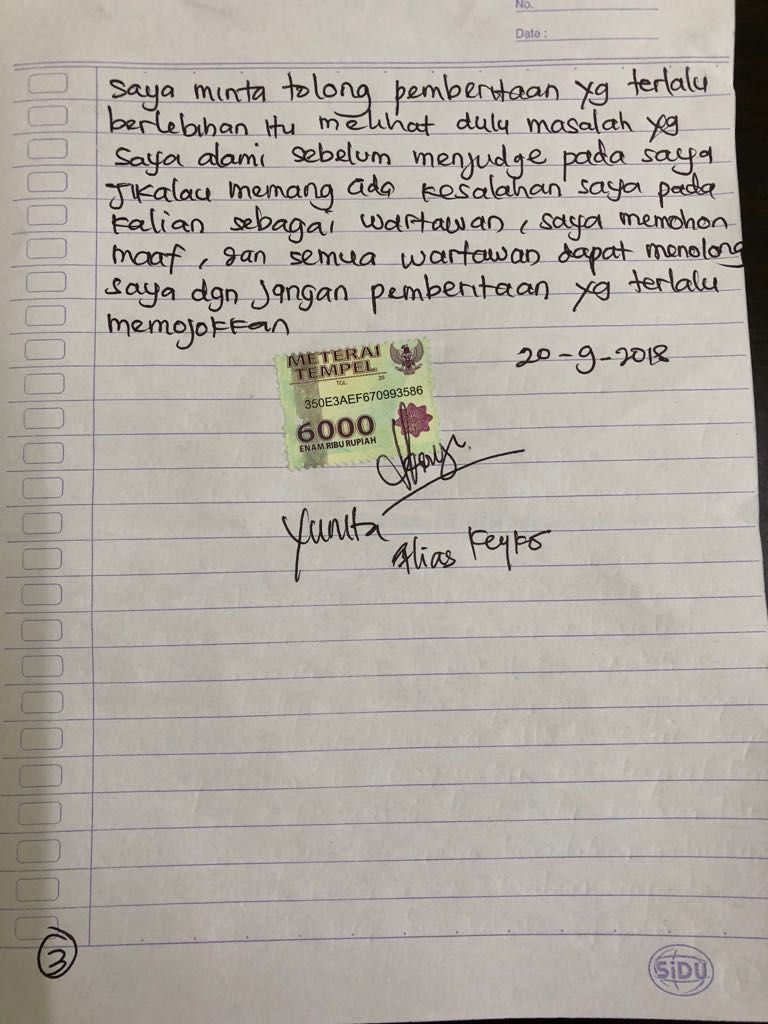 No.
Date :
saya minta tolong pemberitaan yg terlalu
berlebihan itu melihat dulu masalah yg
saya alami sebelum menjudge pada saya
Jikalau memang ada kesalahan saya pada
kalian sebagai wartawan, saya memohon
maaf, dan semua wartawan dapat menolong
saya dgn jangan pemberitaan yg terlalu
memojokkan
20-9-2018
METERAI
TEMPEL
TGL 20
350E3AEF670993586
6000
ENAM RIBU RUPIAH
Yunita
Alias Keyko
3
SiDU